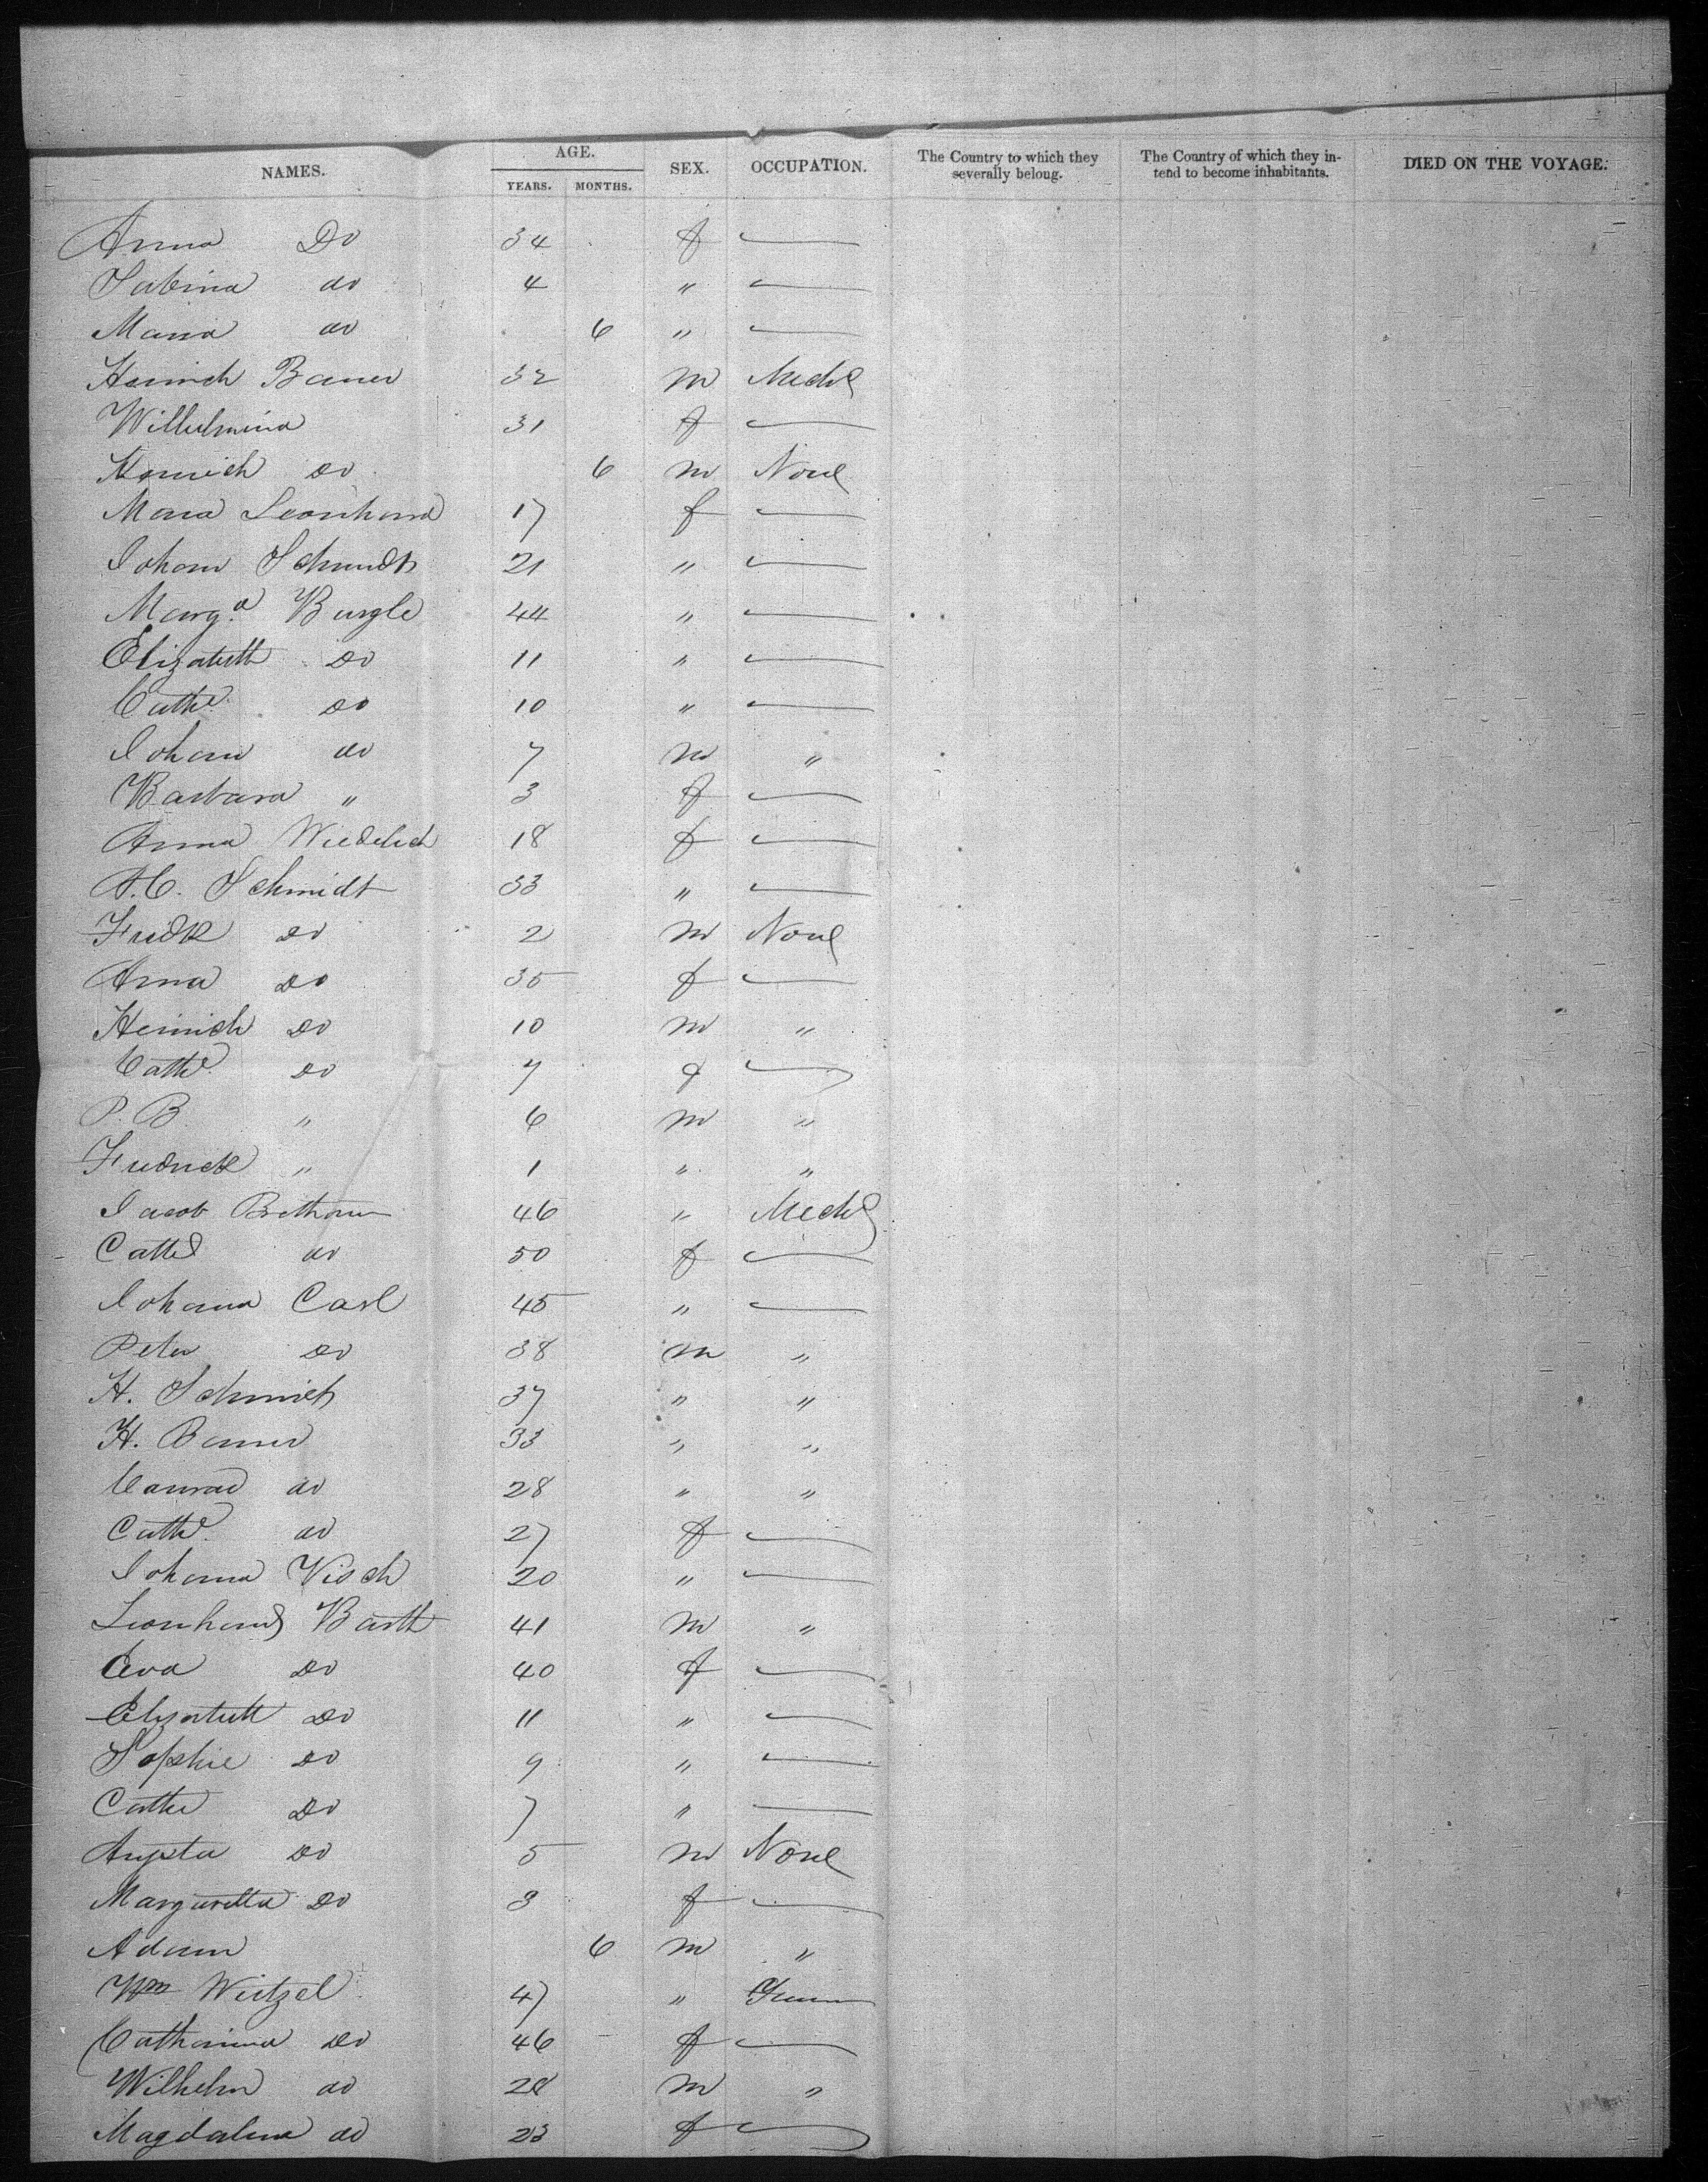 NAMES. AGE. SEX. OCCUPATION. The Country to which they severally belong. The Country of which they in- tend to become inhabitants. DIED ON THE VOYAGE.
YEARS. MONTHS.
Anna Do 34 f —
Sabina do 4 " —
Maria do 6 " —
Heinrich Bauer 32 m Mech
Willhelmina 31 f —
Heinrich Do 6 m None
Maria Leonhard 17 f —
Johann Schmidt 21 " —
Marga Burgle 44 " —
Elizabeth Do 11 " —
Cathe Do 10 " —
Johann do 7 m "
Barbara " 3 f —
Anna 18 f —
A.C. Schmidt 33 " —
Fredk Do 2 m None
Anna Do 35 f —
Heinrich Do 10 m "
Cathe Do 7 f —
P. B. " 6 m "
Fredrick " 1 " "
Jacob 46 " Mech
Cathe do 50 f —
Johanna Carl 45 " —
Peter Do 38 m "
H. Schmidt 37 " "
H. Bauer 33 " "
Conrad do 28 " "
Cathe do 27 f —
Johanna Visch 20 " —
Leonhard Barth 41 m "
Eva Do 40 f —
Elizabeth Do 11 " —
Sophie Do 9 " —
Cathe Do 7 " —
Augusta Do 5 m None
Margaretta Do 3 f —
Adam 6 m "
Wm Weitzel 47 "
Catharina Do 46 f —
Wilhelm do 28 m "
Magdalena do 23 f —